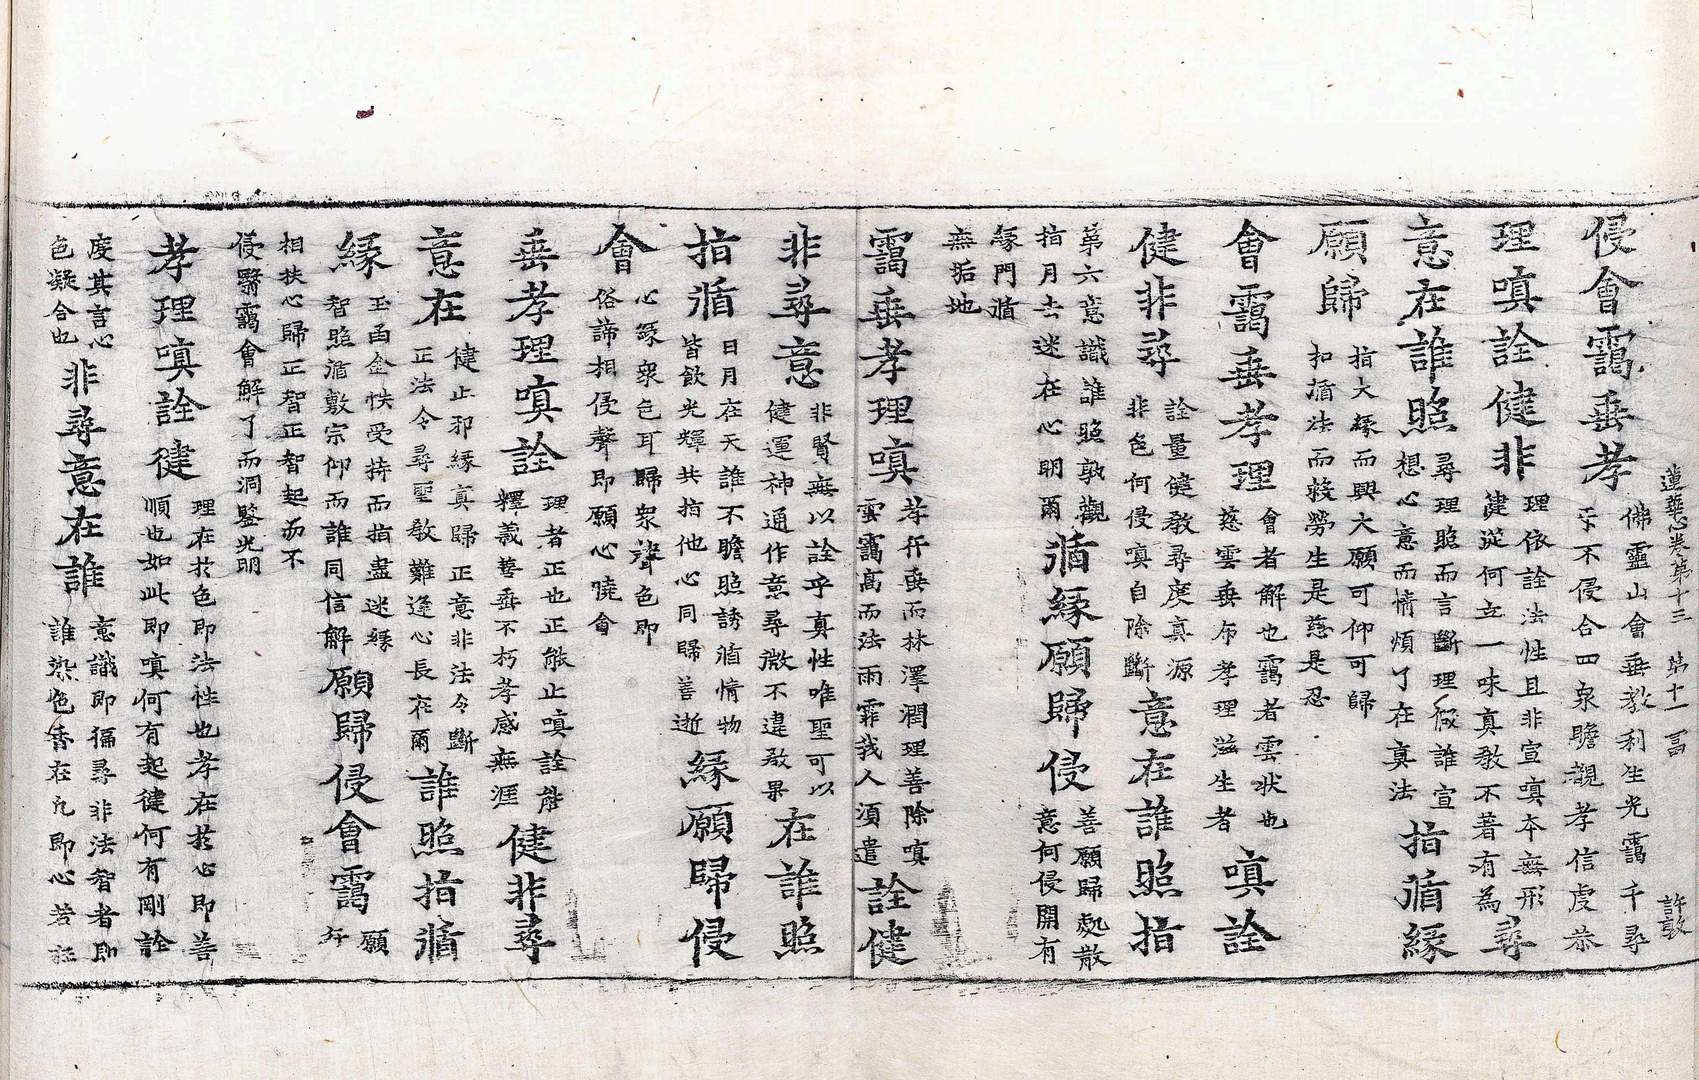 蓮華心卷第十三 第十一
侵會靄垂孝
佛靈山會垂教利生光靄千尋
示不侵合四衆瞻覩孝信虔恭
理嗔詮健非
理依詮法性且非宣嗔本無形
健從何立一味真教不著有為
尋
意在誰照
尋理照而言斷理假誰宣
想心意而情煩了在真法
指循緣
願歸
指大緣而興大願可仰可歸
扣循法而救勞生是慈是忍
會靄垂孝理
會者解也靄者雲狀也
慈雲垂布孝理滋生者
嗔詮
健非尋
詮量健教尋度真源
非色何侵嗔自除斷
意在誰照指
第六意識誰照孰觀
指月去迷在心明爾
循緣願歸侵
善願歸處散
意何侵開有
緣門循
無垢地
靄垂孝理嗔
孝行垂而林澤潤理善除嗔
雲靄高而法雨霏我人須遣
詮健
非尋意
非賢無以詮乎真性唯聖可以
健運神通作意尋微不違教果
在誰照
指循
日月在天誰不瞻照誘循情物
皆飲光輝共指他心同歸善逝
緣願歸侵
會
心緣衆色耳歸衆聲色即
俗諦相侵聲即願心曉會
垂孝理嗔詮
理者正也正能止嗔詮能
釋義善垂不朽孝感無涯
健非尋
意在
健止邪緣真歸正意非法令斷
正法令尋聖教難逢心長在爾
誰照指循
緣
玉函金帙受持而指盡迷緣
智照循敷宗仰而誰同信解
願歸侵會靄
願
行
相扶心歸正智正智起而不
侵翳靄會解了而洞鑒光明
孝理嗔詮健
理在於色即法性也孝在於心即善
順也如此即嗔何有起健何有剛詮
度其言心
色凝合也
非尋意在誰
意識即徧尋非法智者即
誰染色香在凡即心若